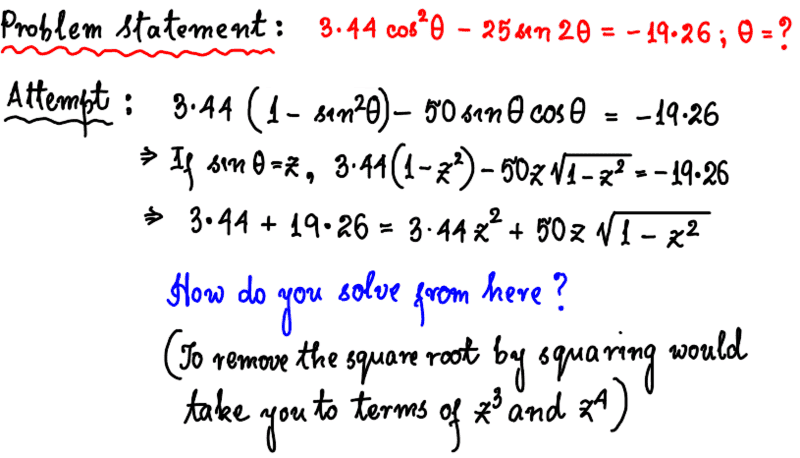 Problem statement: 3.44 cos²θ - 25 sin 2θ = -19.26; θ = ?
Attempt: 3.44 (1 - sin²θ) - 50 sin θ cos θ = -19.26
⇒ If sin θ = z, 3.44(1 - z²) - 50z √(1 - z²) = -19.26
⇒ 3.44 + 19.26 = 3.44 z² + 50 z √(1 - z²)
How do you solve from here?
(To remove the square root by squaring would
take you to terms of z³ and z⁴)